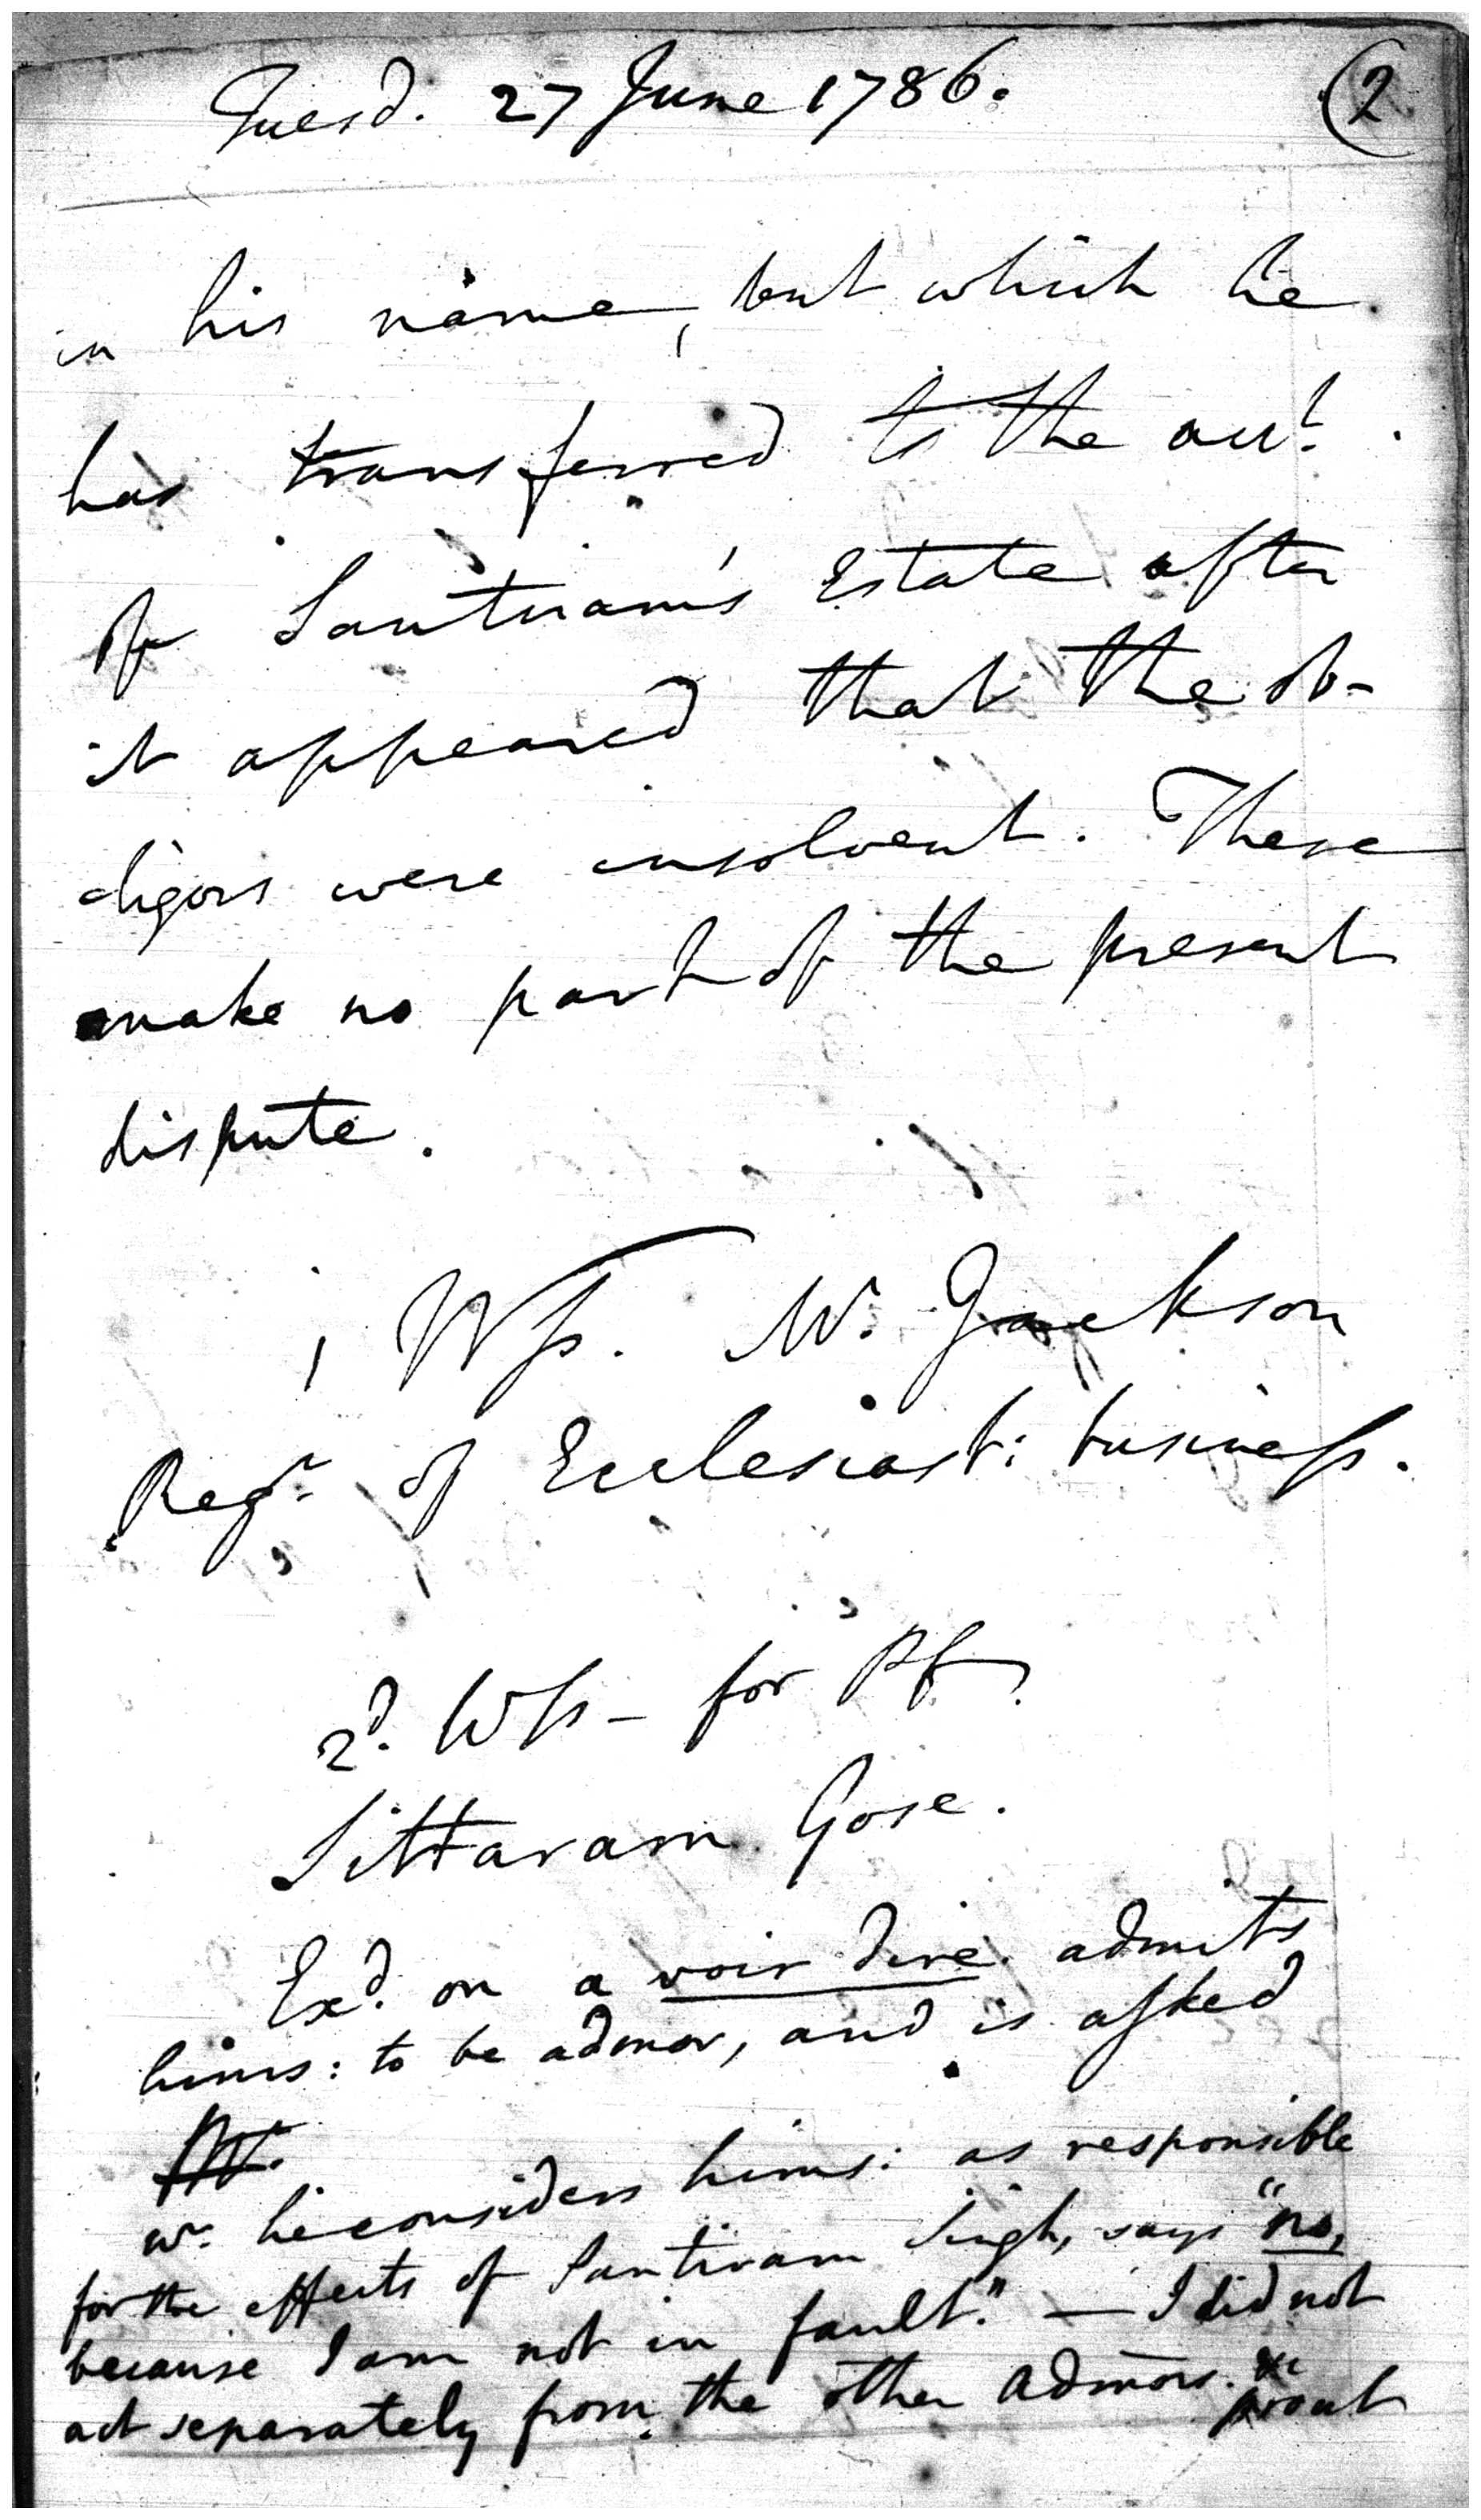 Tuesd. 27 June 1786. (2
in his name, but which he
has transferred to the acct.
of Santiram's Estate after
it appeared that the ob-
ligors were insolvent. These
make no part of the present
dispute.
1 Wss. Mr. Jackson
Regr. of Ecclesiast: business.
2d. Wss - for Plf.
Sittaram Gose.
Exd. on a voir dire admits
hims: to be admor, and is asked
wr. he considers hims: as responsible
for the effects of Santiram Singh, says "no,
because I am not in fault." — I did not
act separately from the other Admors. &c
prout